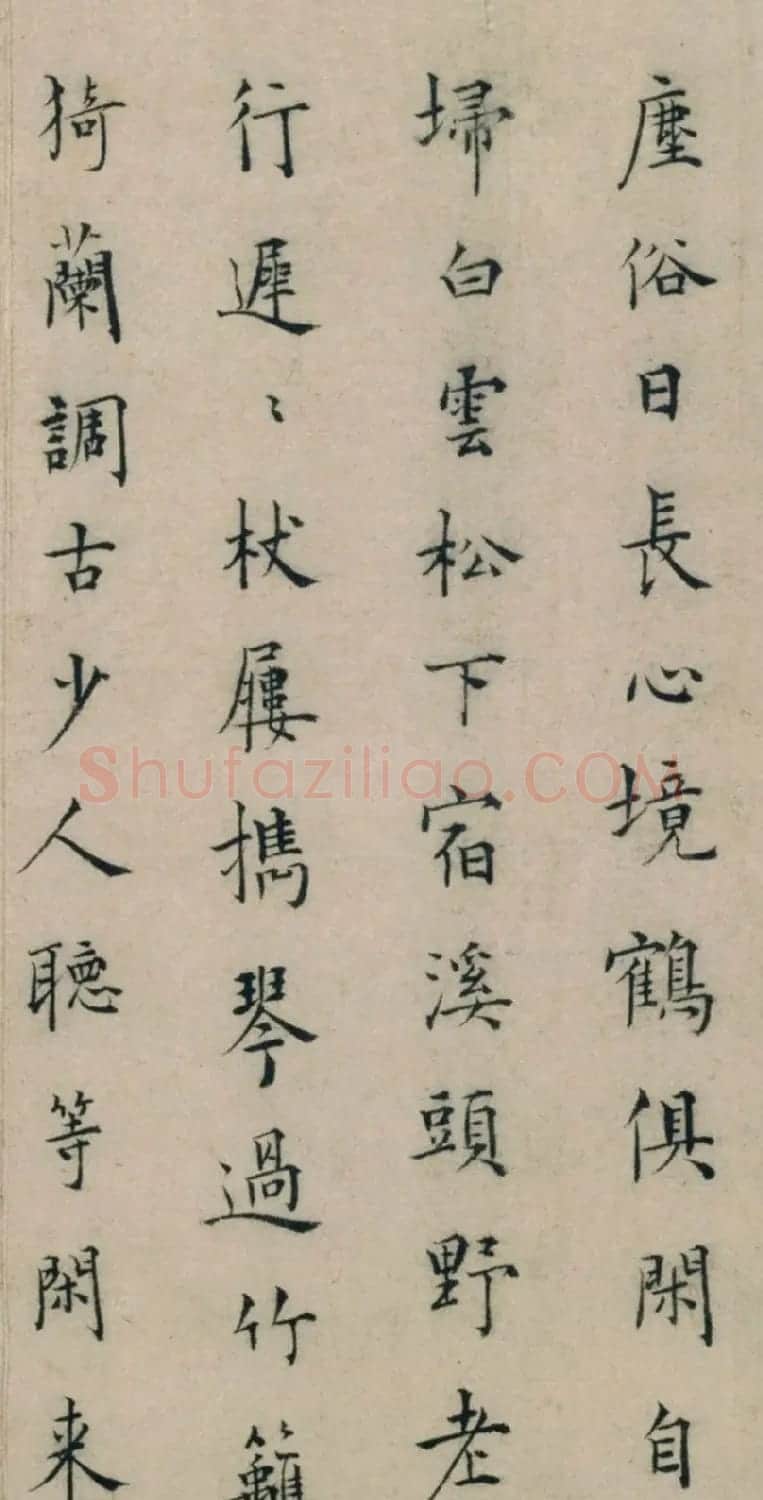 塵俗日長心境鶴俱閑自
埽白雲松下宿溪頭野老
行遲〻杖屨擕琴過竹籬
猗蘭調古少人聽等閑来
Shufaziliao.COM